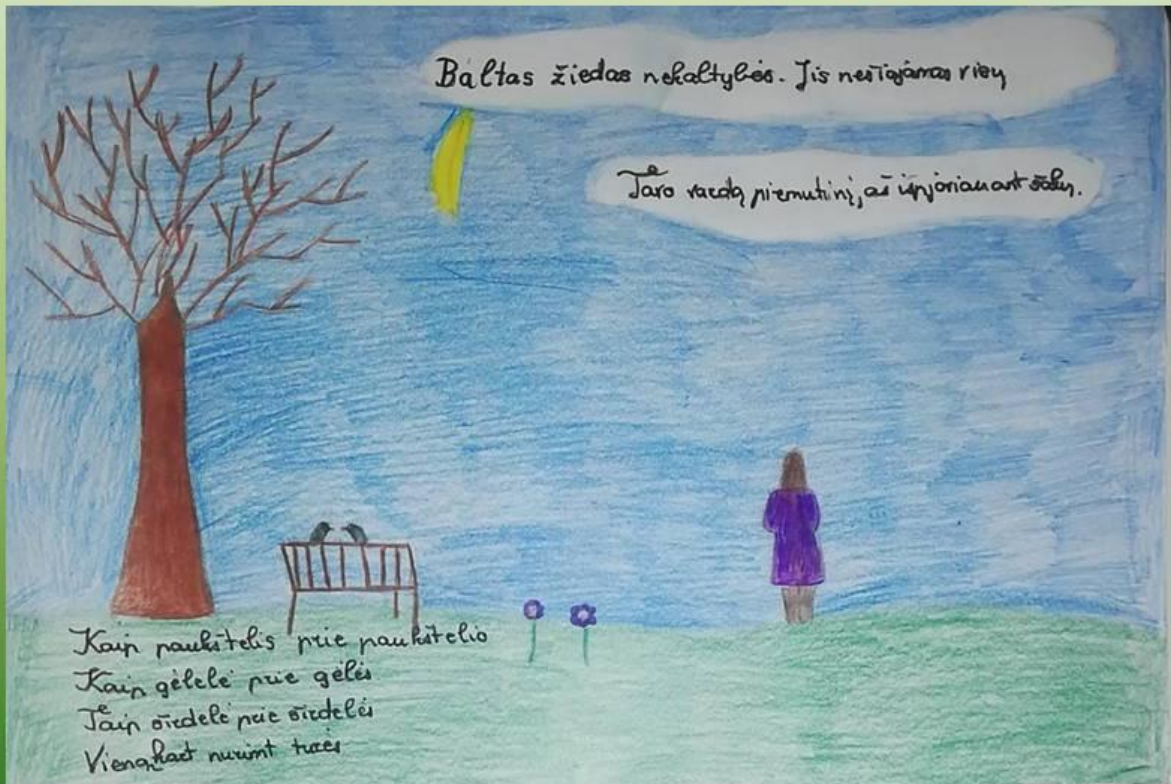 Baltas žiedas nekaltybės. Jis nešiojamas
Tavo vardą pirmutinį, aš išpjoviau ant
Kaip paukštelis prie paukštelio
Kaip gėlelė prie gėlės
Taip širdelė prie širdelės
Vienąkart nurimt turės